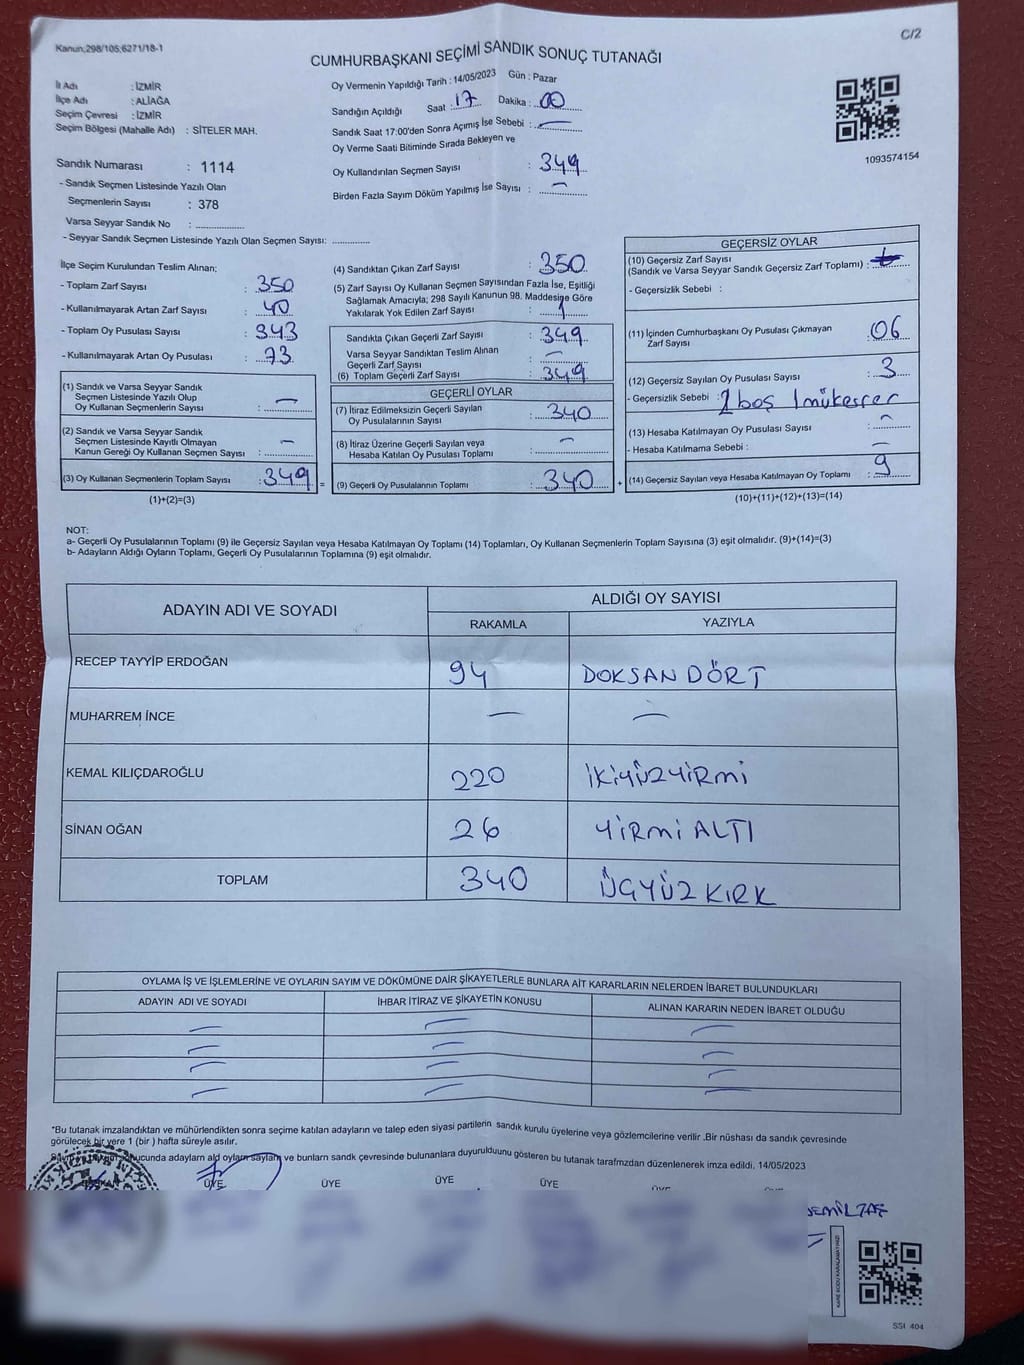 Kanun;298/105;6271/18-1
C/2
CUMHURBAŞKANI SEÇİMİ SANDIK SONUÇ TUTANAĞI
İl Adı : İZMİR
İlçe Adı : ALİAĞA
Seçim Çevresi : İZMİR
Seçim Bölgesi (Mahalle Adı) : SİTELER MAH.
Sandık Numarası : 1114
- Sandık Seçmen Listesinde Yazılı Olan
Seçmenlerin Sayısı : 378
Varsa Seyyar Sandık No :
- Seyyar Sandık Seçmen Listesinde Yazılı Olan Seçmen Sayısı:
Oy Vermenin Yapıldığı Tarih : 14/05/2023 Gün : Pazar
Sandığın Açıldığı Saat : 17 Dakika : 00
Sandık Saat 17:00'den Sonra Açımış İse Sebebi : —
Oy Verme Saati Bitiminde Sırada Bekleyen ve
Oy Kullandırılan Seçmen Sayısı : 349
Birden Fazla Sayım Döküm Yapılmış İse Sayısı : —
1093574154
İlçe Seçim Kurulundan Teslim Alınan;
- Toplam Zarf Sayısı : 350
- Kullanılmayarak Artan Zarf Sayısı : 40
- Toplam Oy Pusulası Sayısı : 343
- Kullanılmayarak Artan Oy Pusulası : 73
(1) Sandık ve Varsa Seyyar Sandık
Seçmen Listesinde Yazılı Olup
Oy Kullanan Seçmenlerin Sayısı : —
(2) Sandık ve Varsa Seyyar Sandık
Seçmen Listesinde Kayıtlı Olmayan
Kanun Gereği Oy Kullanan Seçmen Sayısı : —
(3) Oy Kullanan Seçmenlerin Toplam Sayısı : 349 =
(1)+(2)=(3)
(4) Sandıktan Çıkan Zarf Sayısı : 350
(5) Zarf Sayısı Oy Kullanan Seçmen Sayısından Fazla İse, Eşitliği
Sağlamak Amacıyla; 298 Sayılı Kanunun 98. Maddesine Göre
Yakılarak Yok Edilen Zarf Sayısı : 1
Sandıkta Çıkan Geçerli Zarf Sayısı : 349
Varsa Seyyar Sandıktan Teslim Alınan
Geçerli Zarf Sayısı : —
(6) Toplam Geçerli Zarf Sayısı : 349
GEÇERLİ OYLAR
(7) İtiraz Edilmeksizin Geçerli Sayılan
Oy Pusulalarının Sayısı : 340
(8) İtiraz Üzerine Geçerli Sayılan veya
Hesaba Katılan Oy Pusulası Toplamı : —
(9) Geçerli Oy Pusulalarının Toplamı : 340 +
GEÇERSİZ OYLAR
(10) Geçersiz Zarf Sayısı
(Sandık ve Varsa Seyyar Sandık Geçersiz Zarf Toplamı) :
- Geçersizlik Sebebi :
(11) İçinden Cumhurbaşkanı Oy Pusulası Çıkmayan
Zarf Sayısı : 06
(12) Geçersiz Sayılan Oy Pusulası Sayısı : 3
- Geçersizlik Sebebi : 2 boş 1 mükerrer
(13) Hesaba Katılmayan Oy Pusulası Sayısı : —
- Hesaba Katılmama Sebebi : —
(14) Geçersiz Sayılan veya Hesaba Katılmayan Oy Toplamı : 9
(10)+(11)+(12)+(13)=(14)
NOT:
a- Geçerli Oy Pusulalarının Toplamı (9) ile Geçersiz Sayılan veya Hesaba Katılmayan Oy Toplamı (14) Toplamları, Oy Kullanan Seçmenlerin Toplam Sayısına (3) eşit olmalıdır. (9)+(14)=(3)
b- Adayların Aldığı Oyların Toplamı, Geçerli Oy Pusulalarının Toplamına (9) eşit olmalıdır.
ADAYIN ADI VE SOYADI
ALDIĞI OY SAYISI
RAKAMLA YAZIYLA
RECEP TAYYİP ERDOĞAN 94 DOKSAN DÖRT
MUHARREM İNCE — —
KEMAL KILIÇDAROĞLU 220 İKİYÜZYİRMİ
SİNAN OĞAN 26 YİRMİ ALTI
TOPLAM 340 ÜÇYÜZ KIRK
OYLAMA İŞ VE İŞLEMLERİNE VE OYLARIN SAYIM VE DÖKÜMÜNE DAİR ŞİKAYETLERLE BUNLARA AİT KARARLARIN NELERDEN İBARET BULUNDUKLARI
ADAYIN ADI VE SOYADI İHBAR İTİRAZ VE ŞİKAYETİN KONUSU ALINAN KARARIN NEDEN İBARET OLDUĞU
— — —
— — —
— — —
— — —
*Bu tutanak imzalandıktan ve mühürlendikten sonra seçime katılan adayların ve talep eden siyasi partilerin sandık kurulu üyelerine veya gözlemcilerine verilir .Bir nüshası da sandık çevresinde
görülecek bir yere 1 (bir ) hafta süreyle asılır.
ucunda adayların ald oyların sayları ve bunların sandk çevresinde bulunanlara duyurulduunu gösteren bu tutanak tarafmzdan düzenlenerek imza edildi, 14/05/2023
ÜYE ÜYE ÜYE ÜYE
KARE KODU KARALAMAYINIZ!
SSI 404